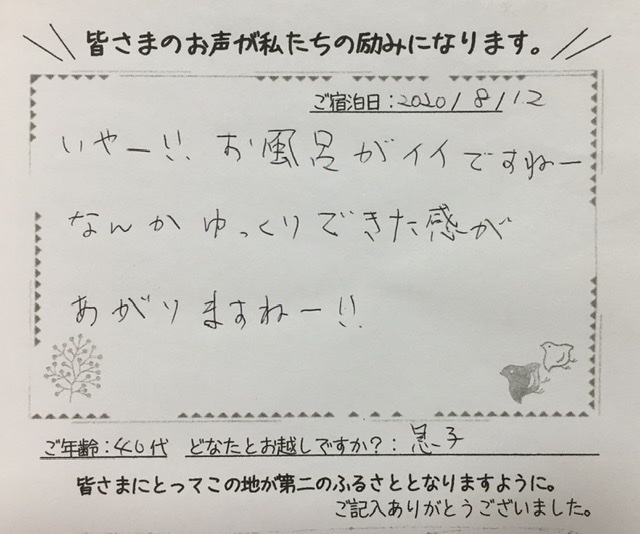 皆さまのお声が私たちの励みになります。
ご宿泊日:2020/8/12
いやー!! お風呂がイイですねー
なんかゆっくりできた感が
あがりますねー!!
ご年齢:40代 どなたとお越しですか?: 息子
皆さまにとってこの地が第二のふるさととなりますように。
ご記入ありがとうございました。